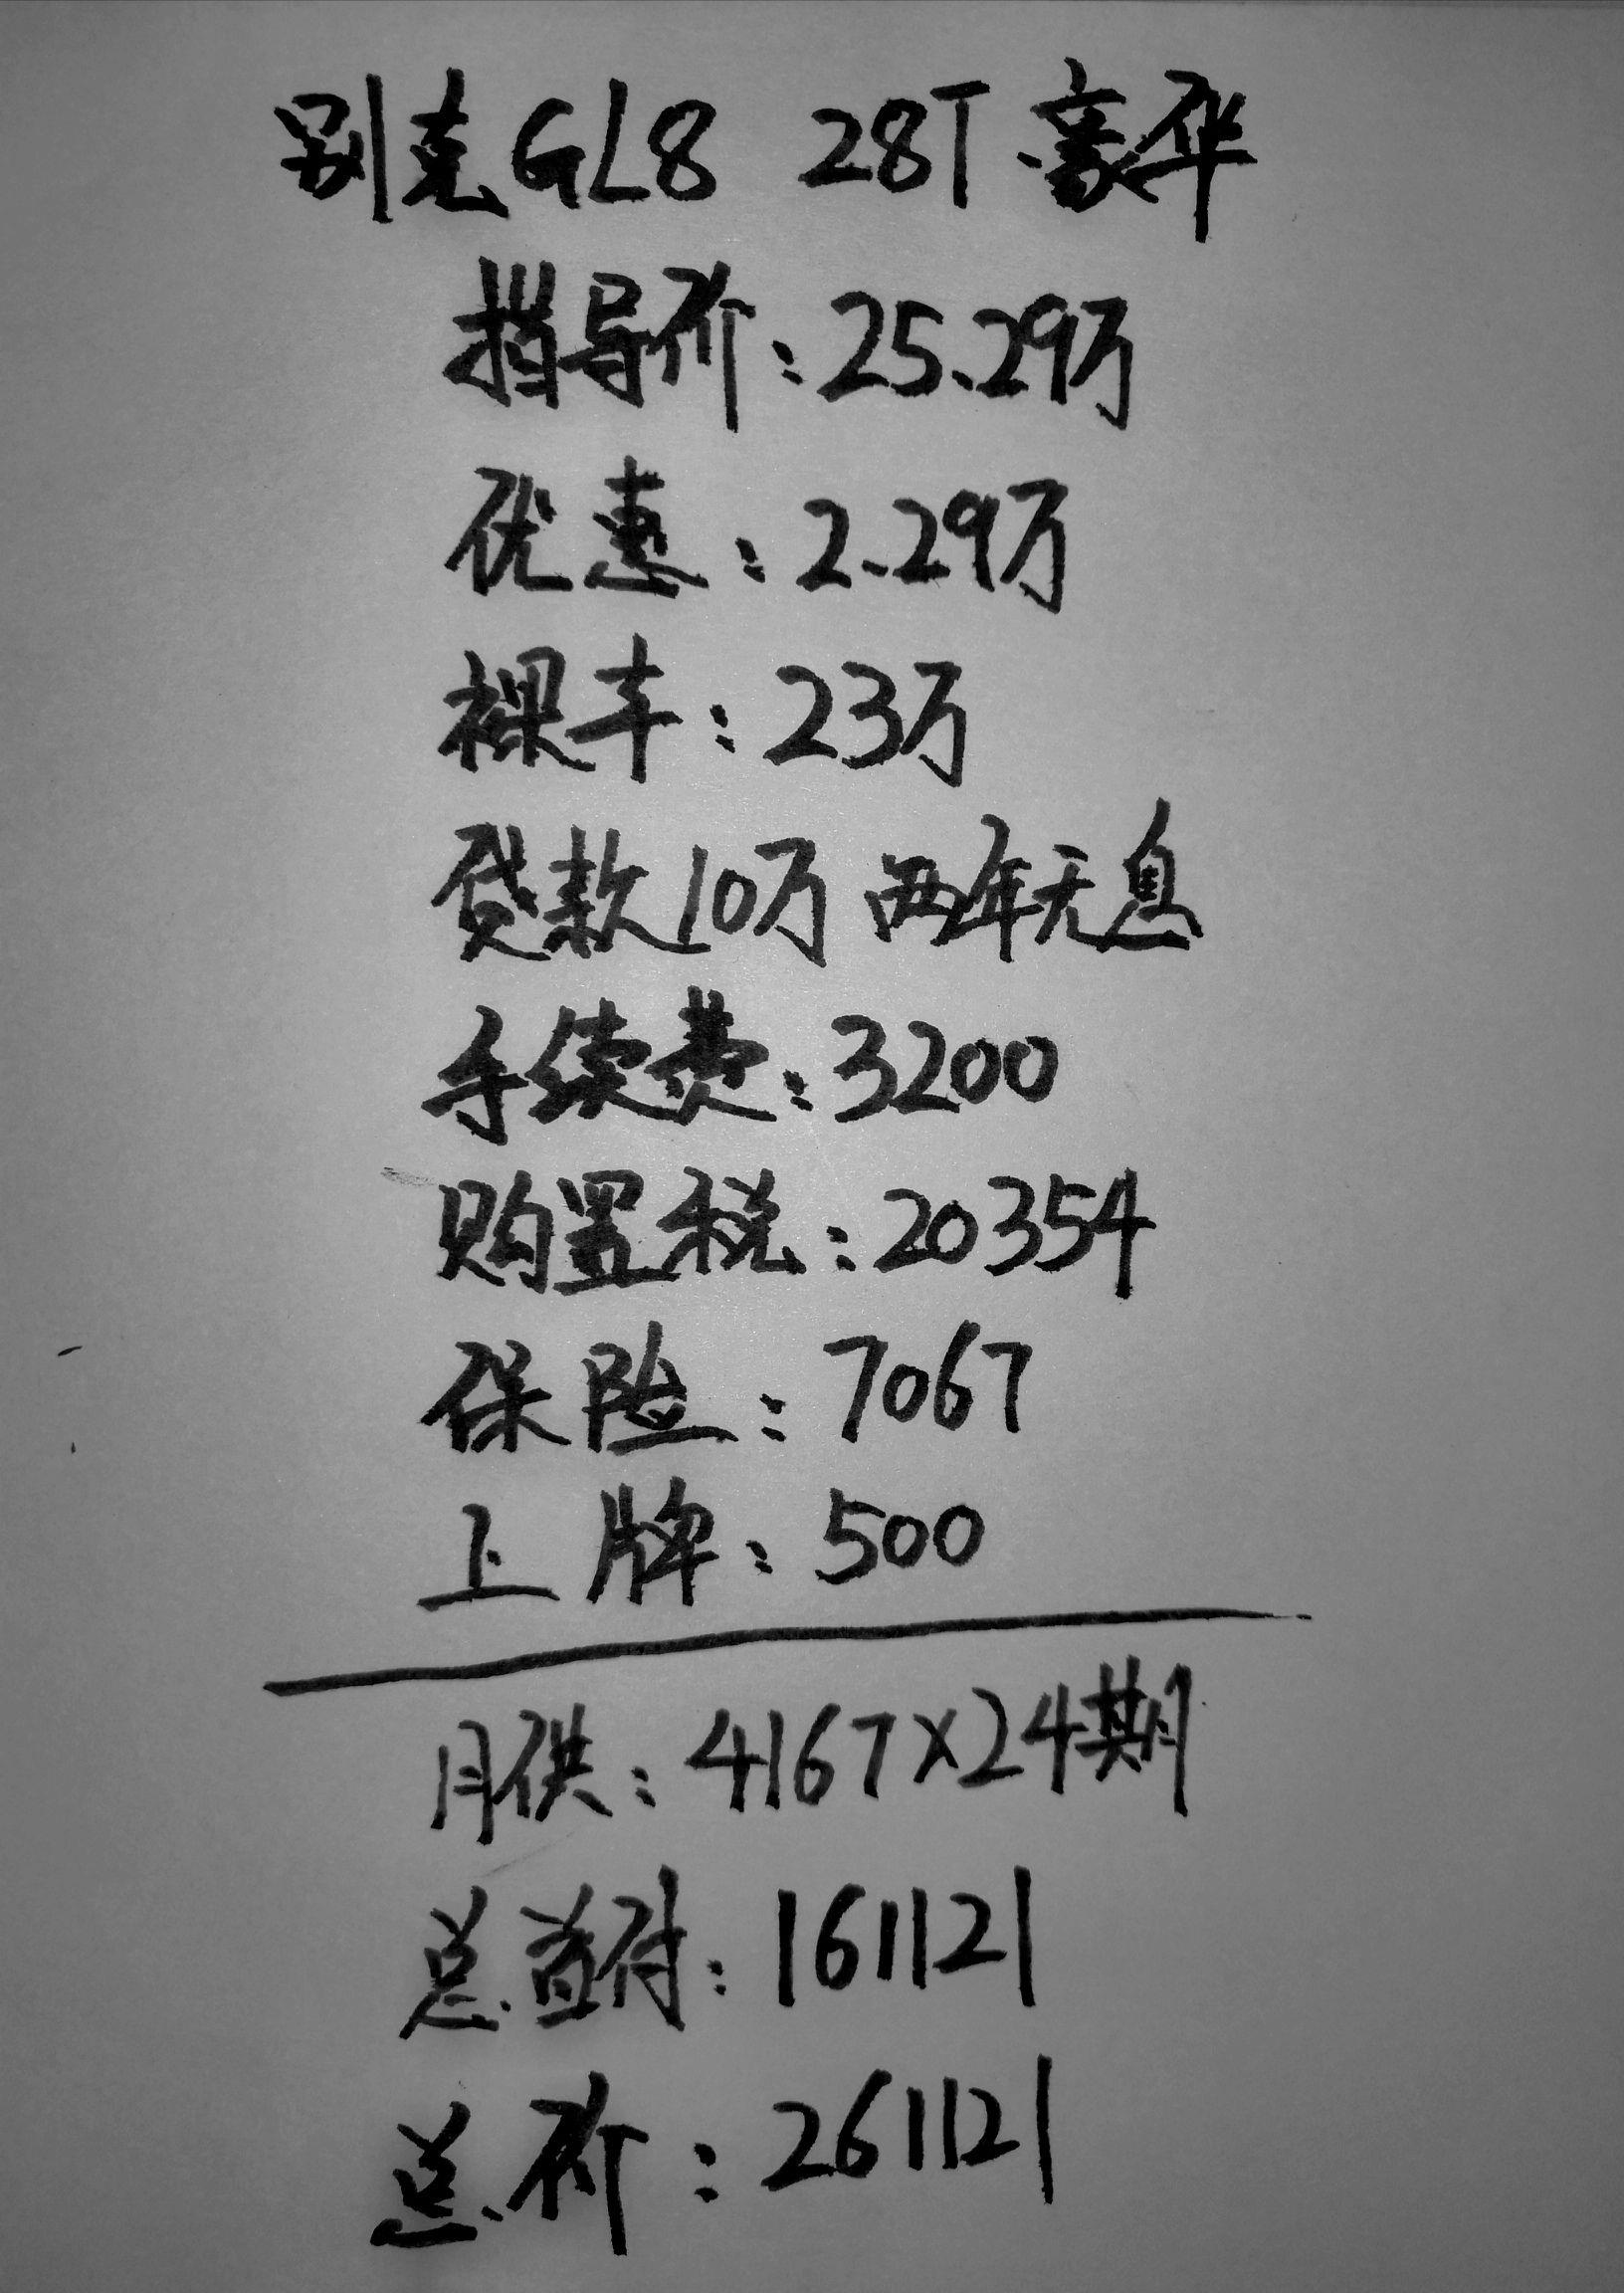 别克GL8 28T豪华
指导价:25.29万
优惠:2.29万
裸车:23万
贷款10万 两年无息
手续费:3200
购置税:20354
保险:7067
上牌:500
月供:4167×24期
总首付:161121
总价:261121